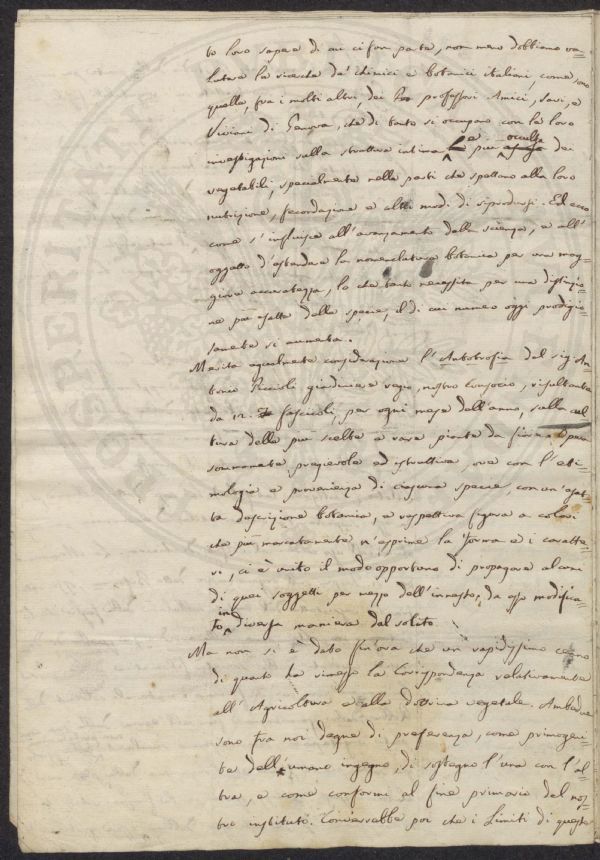 to loro sapere di cui ci fan parte, non meno dobbiamo va=
lutare le ricerche de' chimici e botanici italiani, come sono
quelle, fra i molti altri, dei professori Amici, Savi, e
Viviani di Genova, che di tanto si occupano con le loro
investigazioni sulla struttura intima e le più occulte dei
vegetabili, specialmente nelle parti che spettano alla loro
nutrizione, fecondazione e altri modi di riprodursi. Ed ecco
come s'influisce all'avanzamento della scienza, e all'
oggetto d'estendere la nomenclatura botanica per una mag=
giore accuratezza, lo che tanto necessita per una distinzio=
ne più esatta delle specie, il di cui numero oggi prodigio=
samente si aumenta.
Merita egualmente considerazione l'Antotrofia del sig. An=
tonio Piccioli giardiniere regio, nostro consocio, risultante
da 12. fascicoli, per ogni mese dell'anno, sulla cul
tura delle più scelte e rare piante da fiore. Opera
sommamente pregievole ed istruttiva, ove con l'eti=
mologia e provenienza di ciascuna specie, con un'esat=
ta descrizione botanica, e respettiva figura a colori
che più marcatamente n'esprime la forma e i caratte=
ri, ci è unito il modo opportuno di propagare alcuni
di quei soggetti per mezzo dell'innesto, da esso modifica=
to in diversa maniera dal solito.
Ma non si è dato fin'ora che un rapidissimo cenno
di quanto ha rimesso la Corrispondenza relativamente
all'Agricoltura e alla dottrina vegetale. Ambedue
sono fra noi degne di preferenza, come primogeni=
te dell'umano ingegno, di sostegno l'una con l'al=
tra, e come conformi al fine primario del nos=
tro instituto. Converrebbe poi che i limiti di queste